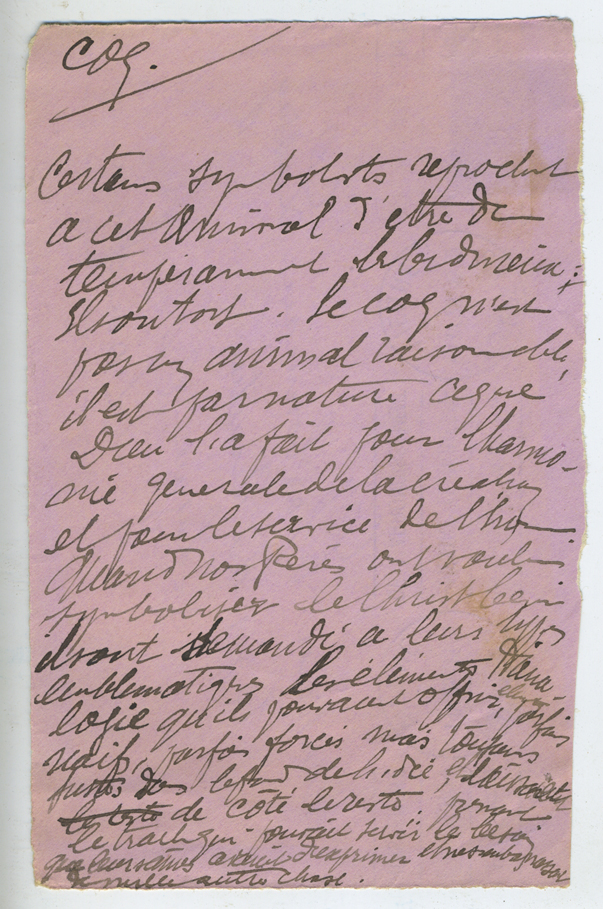 coq.
Certains symbolists reprochent
a cet animal d'etre de
temperamment libidineux;
Ils ont tort. Le coq n'est
pas un animal raisonnable,
il est par nature ce que
Dieu l'a fait pour l'harmo-
nie generale de la création
et pour le service de l'hom
Quand nos Pères ont voulu
symboliser le Christ
ils ont demandé a leurs types
emblematiques les éléments d'ana-
logie qu'ils pouvaient offrir, parfois
naifs, parfois forcés mais toujours
justes dans le fond de l'idée, et laissaient
de côté le reste. prenant
le trait qui pouvait servir le besoin
que leurs âmes avaient d'exprimer et ne
de nulle autre chose.